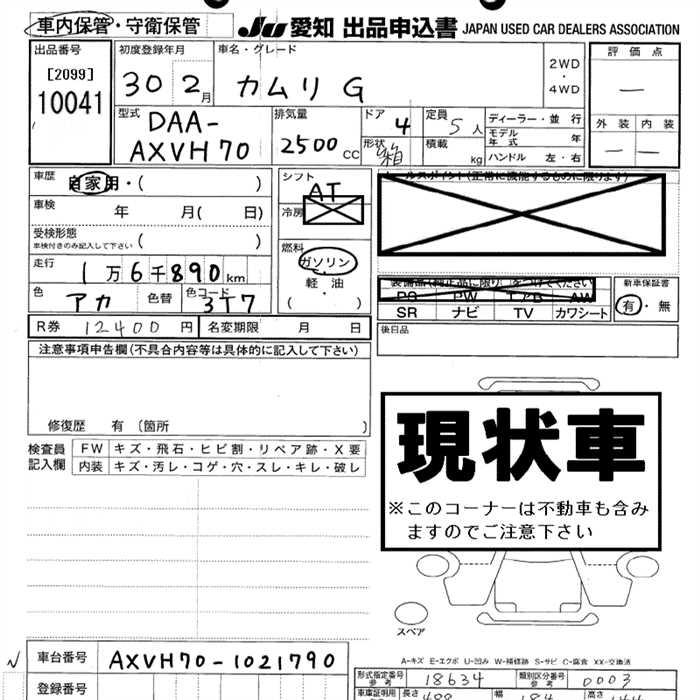 車内保管・守衛保管 JU 愛知 出品申込書 JAPAN USED CAR DEALERS ASSOCIATION
出品番号 初度登録年月 車名・グレード 評価点
[2099] 30 2月 カムリ G 2WD
・
10041 4WD —
型式 排気量 ドア 定員 ディーラー・並行 外装 内装
DAA- 4 5人 モデル年式 年
AXVH70 2500cc 形状 箱 積載 kg ハンドル 左・右 — —
車歴 自家用・( ) シフト AT
車検 年 月( 日) 冷房
受検形態
車検付きのみ記入して下さい ( ) 燃料
走行 1万6千890km ガソリン
軽油 新車保証書
色 アカ 色替 色コード 3T7 ・( ) PS PW エアB AW 有・無
SR ナビ TV カワシート
R券 12400円 名変期限 月 日 後日品
注意事項申告欄(不具合内容等は具体的に記入して下さい)
修復歴 有 〔箇所 〕
検査員 FW キズ・飛石・ヒビ割・リペア跡・X要
記入欄 内装 キズ・汚レ・コゲ・穴・スレ・キレ・破レ
現状車
※このコーナーは不動車も含み
ますのでご注意下さい
スペア
A-キズ E-エクボ U-凹み W-補修跡 S-サビ C-腐食 XX-交換済
車台番号 AXVH70-1021790
形式指定番号 参考 18634 類別区分番号 参考 0003
登録番号 車庫証明用 長さ 幅 高さ